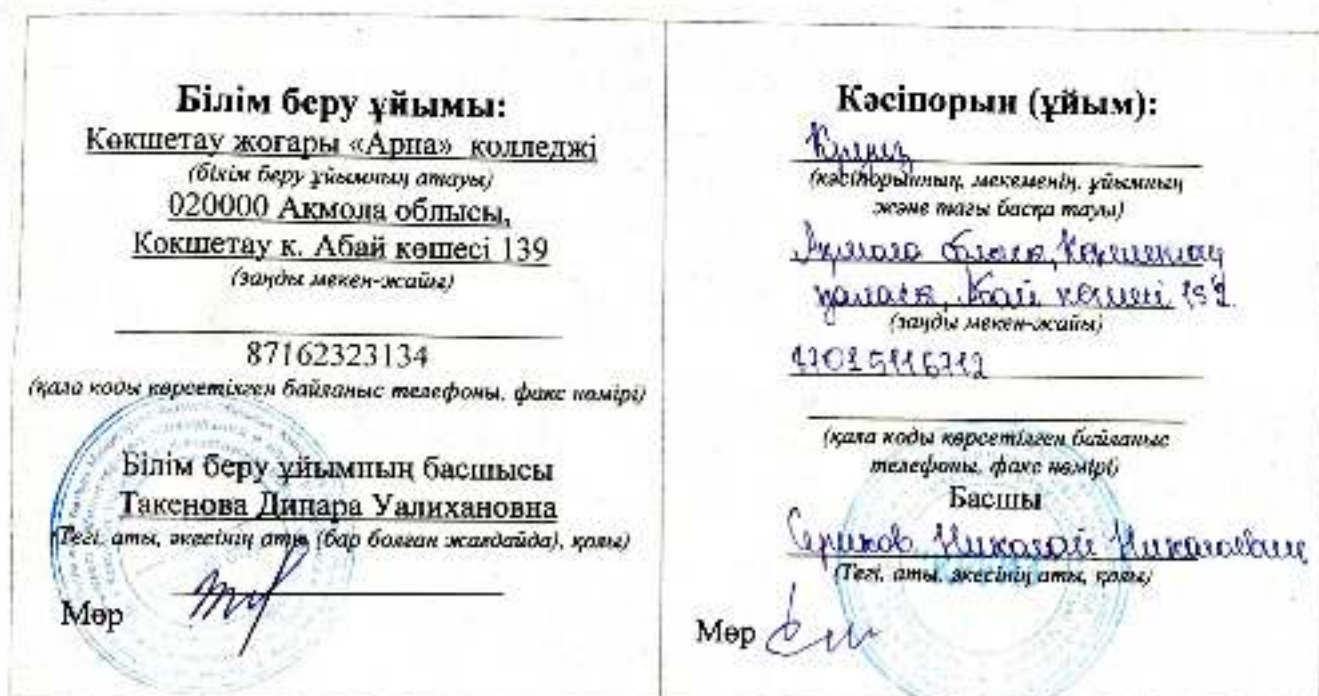 Білім беру ұйымы:
Көкшетау жоғары «Арна» колледжі
(білім беру ұйымның атауы)
020000 Ақмола облысы,
Кокшетау қ. Абай көшесі 139
(заңды мекен-жайы)
87162323134
(қала коды көрсетілген байланыс телефоны, факс нөмірі)
Білім беру ұйымның басшысы
Такенова Динара Уалихановна
(Тегі, аты, әкесінің аты (бар болған жағдайда), қолы)
Мөр
Кәсіпорын (ұйым):
(кәсіпорынның, мекеменің, ұйымның
және тағы басқа тауы)
Ақмола облысы, Көкшетау
қаласы, Абай көшесі
(заңды мекен-жайы)
(қала коды көрсетілген байланыс
телефоны, факс нөмірі)
Басшы
Николай Николаевич
(Тегі, аты, әкесінің аты, қолы)
Мөр